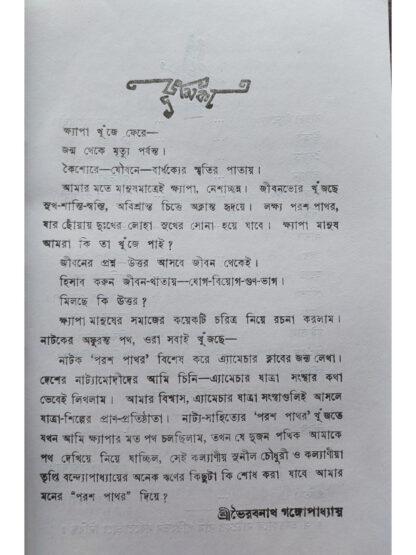 ভূমিকা
ক্ষ্যাপা খুঁজে ফেরে—
জন্ম থেকে মৃত্যু পর্যন্ত।
কৈশোরে—যৌবনে—বার্ধক্যের স্মৃতির পাতায়।
আমার মতে মানুষমাত্রেই ক্ষ্যাপা, নেশাচ্ছন্ন। জীবনভোর খুঁজছে
সুখ-শান্তি-স্বস্তি, অবিশ্রান্ত চিত্তে অক্লান্ত হৃদয়ে। লক্ষ্য পরশ পাথর,
যার ছোঁয়ায় দুঃখের লোহা সুখের সোনা হয়ে যাবে। ক্ষ্যাপা মানুষ
আমরা কি তা খুঁজে পাই?
জীবনের প্রশ্ন-উত্তর আসবে জীবন থেকেই।
হিসাব করুন জীবন-খাতায়—যোগ-বিয়োগ-গুণ-ভাগ।
মিলছে কি উত্তর?
ক্ষ্যাপা মানুষের সমাজের কয়েকটি চরিত্র নিয়ে রচনা করলাম।
নাটকের অফুরন্ত পথ, ওরা সবাই খুঁজছে—
নাটক 'পরশ পাথর' বিশেষ করে এ্যামেচার ক্লাবের জন্য লেখা।
দেশের নাট্যামোদীদের আমি চিনি—এ্যামেচার যাত্রা সংস্থার কথা
ভেবেই লিখলাম। আমার বিশ্বাস, এ্যামেচার যাত্রা সংস্থাগুলিই আসলে
যাত্রা-শিল্পের প্রাণ-প্রতিষ্ঠাতা। নাট্য-সাহিত্যের 'পরশ পাথর' খুঁজতে
যখন আমি ক্ষ্যাপার মত পথ চলছিলাম, তখন যে দুজন পথিক আমাকে
পথ দেখিয়ে নিয়ে যাচ্ছিল, সেই কল্যাণীয় সুনীল চৌধুরী ও কল্যাণীয়া
তৃপ্তি বন্দ্যোপাধ্যায়ের অনেক ঋণের কিছুটা কি শোধ করা যাবে আমার
মনের "পরশ পাথর" দিয়ে?
শ্রীভৈরবনাথ গঙ্গোপাধ্যায়